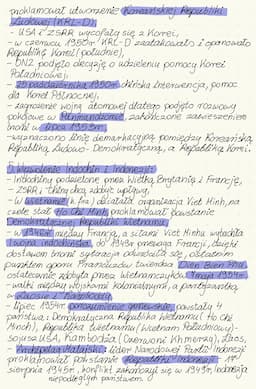 proklamował utworzenie Koreańskiej Republiki
Ludowej (KRL-D).
- USA i ZSRR wycofały się z Korei,
- w czerwcu 1950r KRL-D zaatakowała i opanowała
Republikę Korei (południe),
- ONZ podjęto decyzję o udzieleniu pomocy Korei
Południowej,
- 25 października 1950r chińska interwencja, pomoc
dla Korei Północnej,
- zagrożenie wojną atomową dlatego podjęto rozmowy
pokojowe w Panmundżomie, zakończone zawieszenie
broni w lipcu 1953r.
- wyznaczono linię demarkacyjną pomiędzy Koreańską
Republiką Ludowo-Demokratyczną, a Republiką Korei.
5) Wyzwolenie Indochin i Indonezji:
- Indochiny podzielone przez Wielką Brytanię i Francję,
- ZSRR i Chiny chcą zdobyć wpływy,
- w Wietnamie (k. fra) działała organizacja Viet Minh, na
czele stał Ho Chi Minh, proklamował powstanie
Demokratycznej Republiki Wietnamu,
- w 1946r między Francją, a siłami Viet Minhu wybuchła
I wojna indochińska, do 1949r przewaga Francji, dzięki
dostawom broni sytuacja odwróciła się, ostatnim
punktem oporu Francuzów twierdza Dien Bien Phu
ostatecznie zdobyta przez wietnamczyków 7 maja 1954r
- walki między wojskami kolonialnymi, a partyzantką
w Laosie i Kambodży,
- lipiec 1954r porozumienie genewskie, powstały 4
państwa: Demokratyczna Republika Wietnamu (Ho Chi
Minch), Republika Wietnamu (Wietnam Południowy)-
sojusz USA, Kambodża (Czerwoni Khmerzy), Laos,
- Archipelag Malajski: lider Narodowej Partii Indonezji
proklamował powstanie Republiki Indonezji 17
sierpnia 1945r, konflikt zakończył się w 1949r, Indonezja
niepodległym państwem.